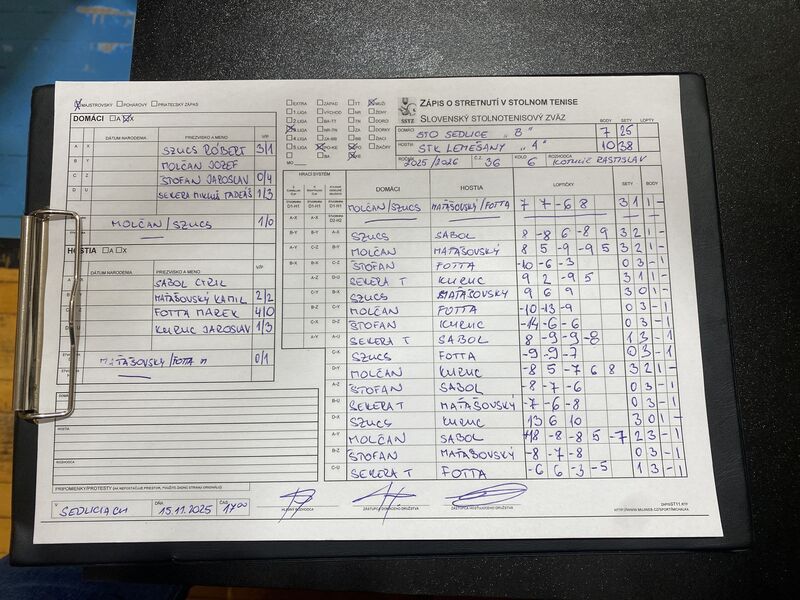 MAJSTROVSKÝ POHÁROVÝ PRIATEĽSKÝ ZÁPAS
DOMÁCI A X
DÁTUM NARODENIA PRIEZVISKO A MENO V/P
A X SZUCS RÓBERT 3/1
B Y MOLČAN JOZEF
C Z ŠTOFAN JAROSLAV 0/4
D U SEKERA MIKULÁŠ TADEÁŠ 1/3
MOLČAN/SZUCS 1/0
HOSTIA A X
DÁTUM NARODENIA PRIEZVISKO A MENO V/P
SABOL CYRIL
MAŤAŠOVSKÝ KAMIL 2/2
FOTTA MAREK 4/0
KURUC JAROSLAV 1/3
MAŤAŠOVSKÝ/FOTTA M 0/1
HOSTIA
ROZHODCA
PRIPOMIENKY/PROTESTY (AK NEPOSTAČUJE PRIESTOR, POUŽITE ZADNÚ STRANU ORIGINÁLU)
V SEDLICIACH DŇA 15.11.2025 ČAS 17:00
HLAVNÝ ROZHODCA ZÁSTUPCA DOMÁCEHO DRUŽSTVA ZÁSTUPCA HOSŤUJÚCEHO DRUŽSTVA
EXTRA ZÁPAD TT MUŽI
1.LIGA VÝCHOD NR ŽENY
2.LIGA BA-TT TN DORCI
3.LIGA NR-TN ZA DORKY
4.LIGA ZA-BB BB ŽIACI
5.LIGA PO-KE PO ŽIAČKY
MO BA KE
SSTZ
ZÁPIS O STRETNUTÍ V STOLNOM TENISE
SLOVENSKÝ STOLNOTENISOVÝ ZVÄZ
BODY SETY LOPTY
DOMÁCI STO SEDLICE "B" 7 25
HOSTIA STK LEMEŠANY "A" 10 38
ROČNÍK 2025/2026 Č.Z. 36 KOLO 6 ROZHODCA KOTULIČ RASTISLAV
HRACÍ SYSTÉM DOMÁCI HOSTIA LOPTIČKY SETY BODY
MOLČAN/SZUCS MAŤAŠOVSKÝ/FOTTA 7 7 -6 8 3 1 1 -
A-X SZUCS SABOL 8 -8 6 -8 9 3 2 1 -
MOLČAN MAŤAŠOVSKÝ 8 5 -9 -9 5 3 2 1 -
ŠTOFAN FOTTA -10 -6 -3 0 3 - 1
SEKERA T KURUC 9 2 -9 5 3 1 1 -
SZUCS MAŤAŠOVSKÝ 9 6 9 3 0 1 -
MOLČAN FOTTA -10 -13 -9 0 3 - 1
ŠTOFAN KURUC -14 -6 -6 0 3 - 1
SEKERA T SABOL 8 -9 -9 -8 1 3 - 1
C-X SZUCS FOTTA -9 -9 -7 0 3 - 1
D-Y MOLČAN KURUC -8 5 -7 6 8 3 2 1 -
A-Z ŠTOFAN SABOL -8 -7 -6 0 3 - 1
B-U SEKERA T MAŤAŠOVSKÝ -7 -6 -8 0 3 - 1
D-X SZUCS KURUC 13 6 10 3 0 1 -
A-Y MOLČAN SABOL 18 -8 -8 5 -7 2 3 - 1
B-Z ŠTOFAN MAŤAŠOVSKÝ -8 -7 -8 0 3 - 1
C-U SEKERA T FOTTA -6 6 -3 -5 1 3 - 1